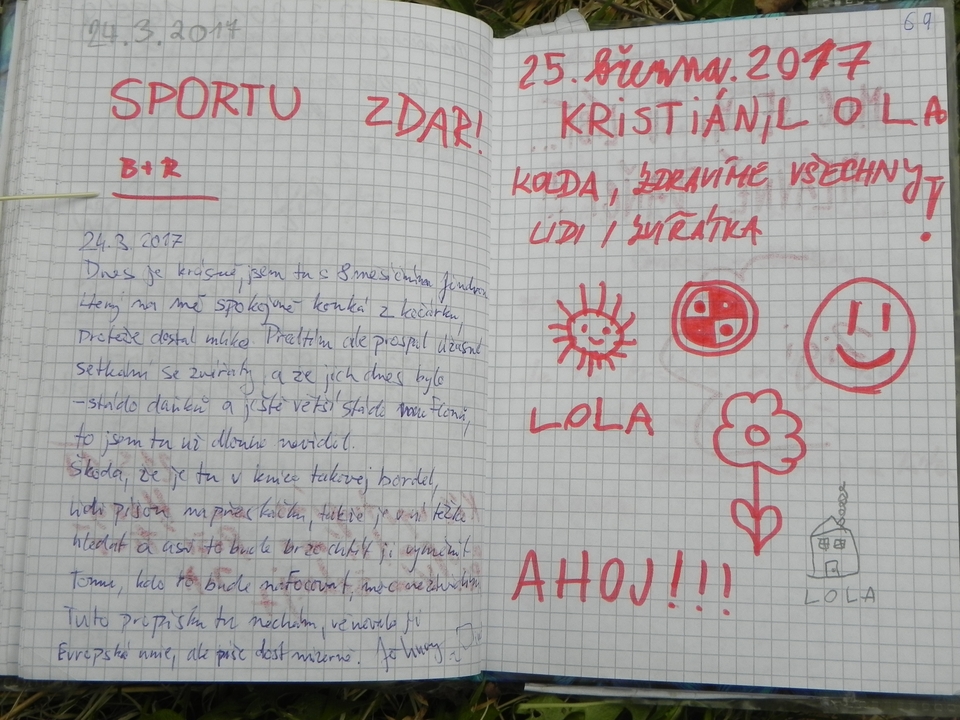 24.3.2017
SPORTU ZDAR!
B+R
24.3. 2017
Dnes je krásně, jsem tu s 8 mesičním
který na mě spokojeně kouká z kočárku,
protože dostal mlíko. Předtím ale prospal úžasné
setkání se zvířaty, a že jich dnes bylo
- stádo daňků a ještě větší stádo muflonů,
to jsem tu už dlouho neviděl.
Škoda, že je tu v knize takovej bordel,
lidi píšou napřeskáčku, takže je v ní těžké
hledat a asi to bude brzo chtít ji vyměnit
Tomu, kdo to bude nafocovat, moc nezávidím
Tuto propisku tu nechám, věnovala ji
Evropská unie, ale píše dost mizerně. Johnny
69
25. března. 2017
KRiSTiÁN, L O L A
KODA, ZDRAVÍME VŠECHNY
LIDI I ZVÍŘÁTKA !
LOLA
AHOJ!!!
LOLA